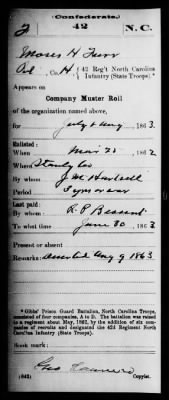 (Confederate.)
42 N.C.
Moses H Furr
Co. H, 42 Reg't North Carolina
Infantry (State Troops).*
Appears on
Company Muster Roll
of the organization named above,
for July & Aug, 1863.
Enlisted:
When Mar 25, 1862
Where Stanly Co
By whom J. M. Hartsell
Period 3 yrs or war
Last paid:
By whom
To what time June 30, 1863
Present or absent
Remarks: Deserted Aug 9 1863
*Gibbs' Prison Guard Battalion, North Carolina Troops,
consisted of four companies, A to D. The battalion was raised
to a regiment about May, 1862, by the addition of six com-
panies of recruits and designated the 42d Regiment North
Carolina Infantry (State Troops).
Book mark:
(642) Geo Copyist.